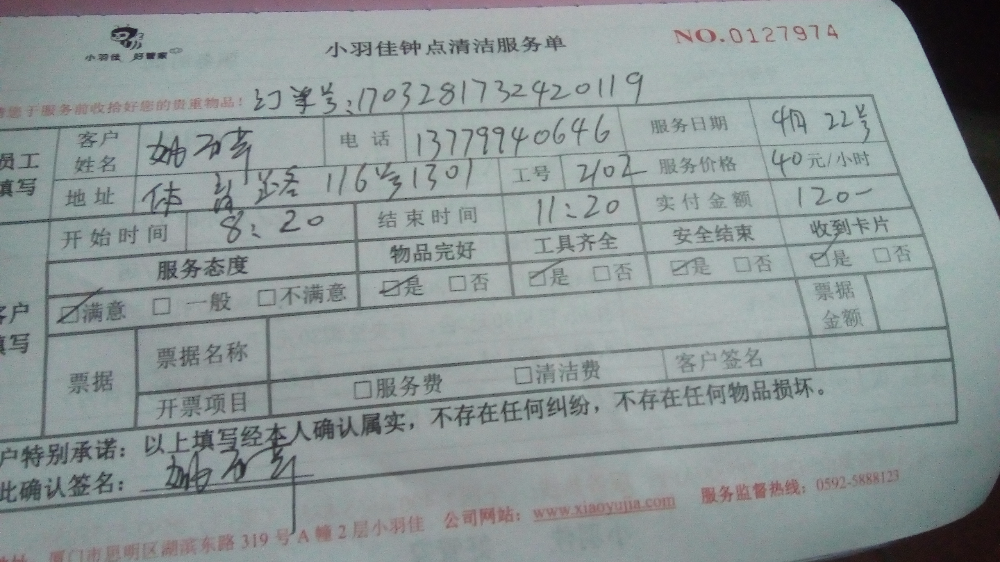 小羽佳 好管家
小羽佳钟点清洁服务单
NO.0127974
请您于服务前收拾好您的贵重物品！订单号：1703281732420119
员工填写
客户姓名
电话 13779940646 服务日期 4月22号
地址 体育路116号1301 工号 2102 服务价格 40元/小时
开始时间 8:20 结束时间 11:20 实付金额 120-
服务态度 物品完好 工具齐全 安全结束 收到卡片
☑满意 □一般 □不满意 ☑是 □否 ☑是 □否 ☑是 □否 ☑是 □否
客户填写
票据 票据名称 票据金额
开票项目 □服务费 □清洁费 客户签名
户特别承诺：以上填写经本人确认属实，不存在任何纠纷，不存在任何物品损坏。
此确认签名：
厦门市思明区湖滨东路319号A幢2层小羽佳 公司网站：www.xiaoyujia.com 服务监督热线：0592-5888123